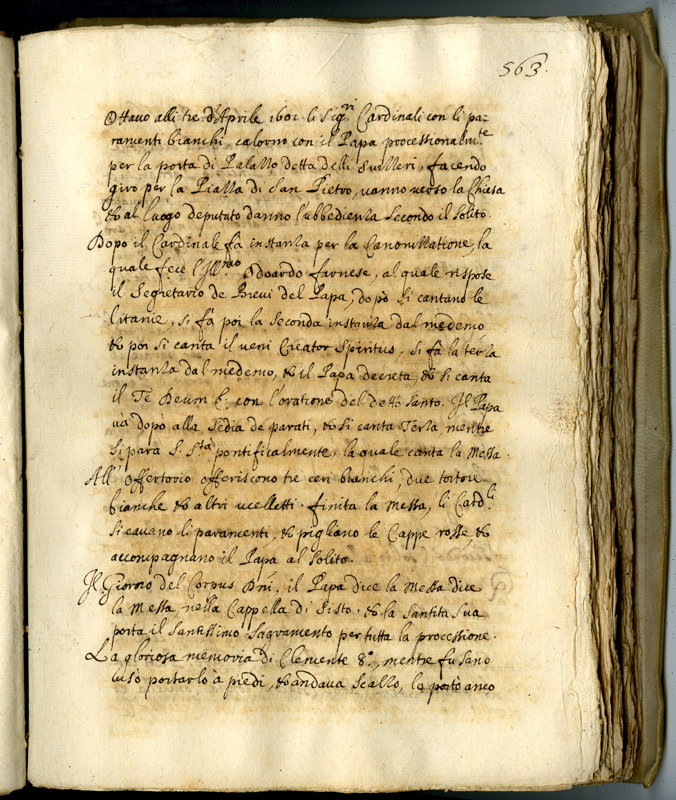 563.
Ottavo alli tre d'Aprile 1601. li Sig.ri Cardinali con li pa=
ramenti bianchi, calorno con il Papa processionalm.te
per la porta di Palazzo detta delli Suizzeri, facendo
giro per la Piazza di San Pietro, vanno verso la Chiesa
& al luogo deputato danno l'ubbedienza secondo il solito.
Dopo il Cardinale fà instanza per la Canonizzatione, la
quale fece l'Ill.mo Odoardo farnese, al quale rispose
il Segretario de Brevi del Papa, dopò si cantano le
litanie, si fà poi la seconda instanza dal medemo
& poi si canta il veni Creator Spiritus, si fà la terza
instanza dal medemo, & il Papa decreta, & si canta
il Te Deum &. con l'oratione del detto Santo. Il Papa
và dopò alla sedia de parati, & si canta Terza mentre
si para S. S.tà pontificalmente, la quale canta la Messa.
All' offertorio offeriscono tre ceri bianchi, due tortore
bianche & altri ucelletti. finita la Messa, li Card.li
si cavano li paramenti, & pigliano le Cappe rosse, &
accompagnano il Papa al solito.
Il Giorno del Corpus Dni, il Papa dice la Messa dice
la Messa nella Cappella di Sisto. & la Santità Sua
porta il Santissimo Sagramento per tutta la processione.
La gloriosa memoria di Clemente 8.º, mentre fu sano
usò portarlo à piedi, & andava scalzo, lo portò anco